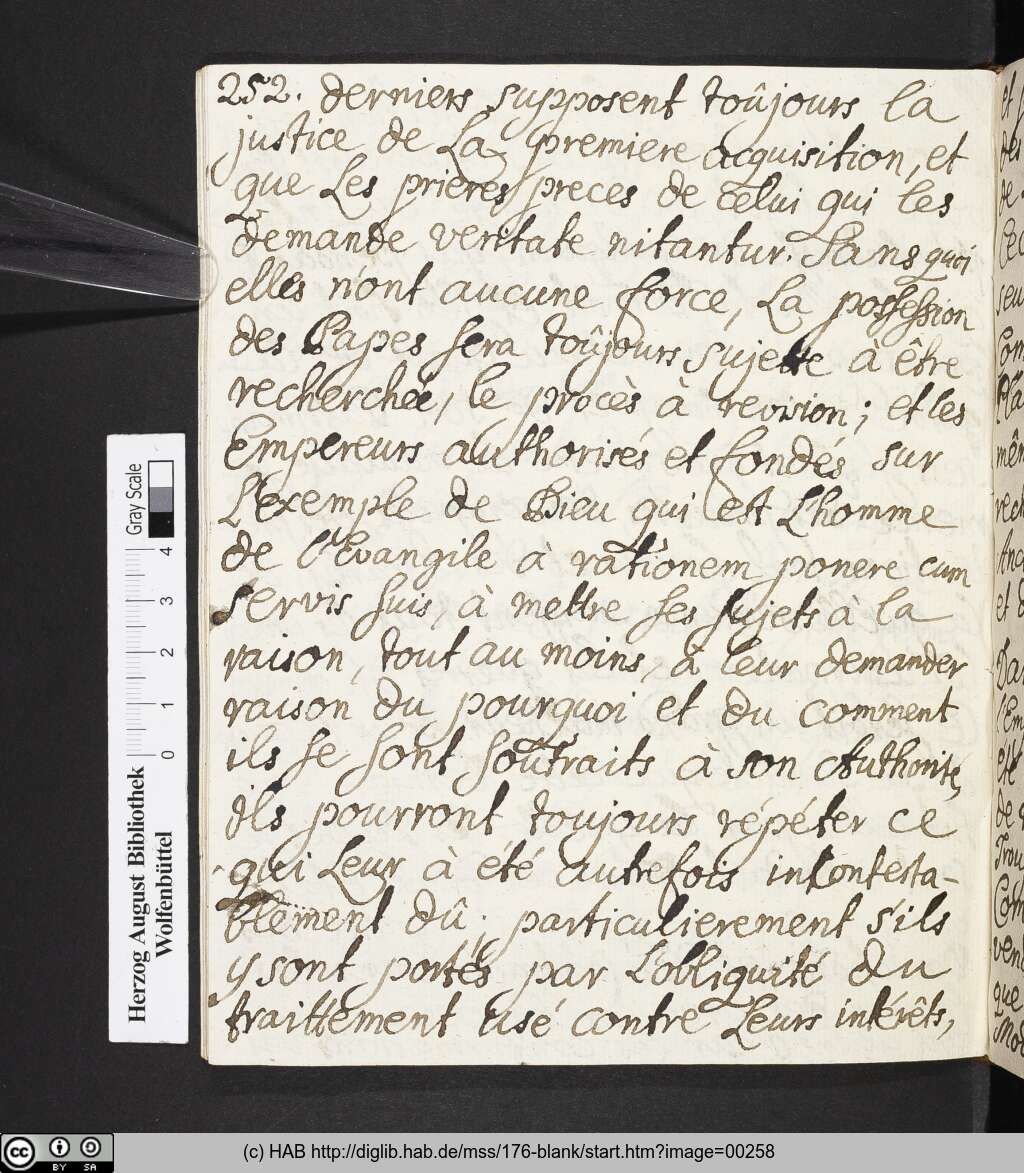 252. derniers supposent toûjours la
justice de La premiere acquisition, et
que Les prieres preces de celui qui les
demande veritate nitantur. Sans quoi
elles n'ont aucune force, La possession
des Papes sera toûjours sujette à être
recherchée, le procès à revision; et les
Empereurs authorisés et fondés sur
L'exemple de Dieu qui est L'homme
de l'Evangile à rationem ponere cum
servis suis, à mettre ses sujets à la
raison, tout au moins, à leur demander
raison du pourquoi et du comment
ils se sont soutraits à son Authorité,
ils pourront toujours répéter ce
qui Leur à été autrefois incontesta-
blement dû; particulierement s'ils
y sont portés par L'obliquité du
traittement usé contre Leurs intérêts,
Herzog August Bibliothek
Wolfenbüttel
Gray Scale
0 1 2 3 4
et
de
seu
mên
et
été
de
ven
que
cc BY SA
(c) HAB http://diglib.hab.de/mss/176-blank/start.htm?image=00258